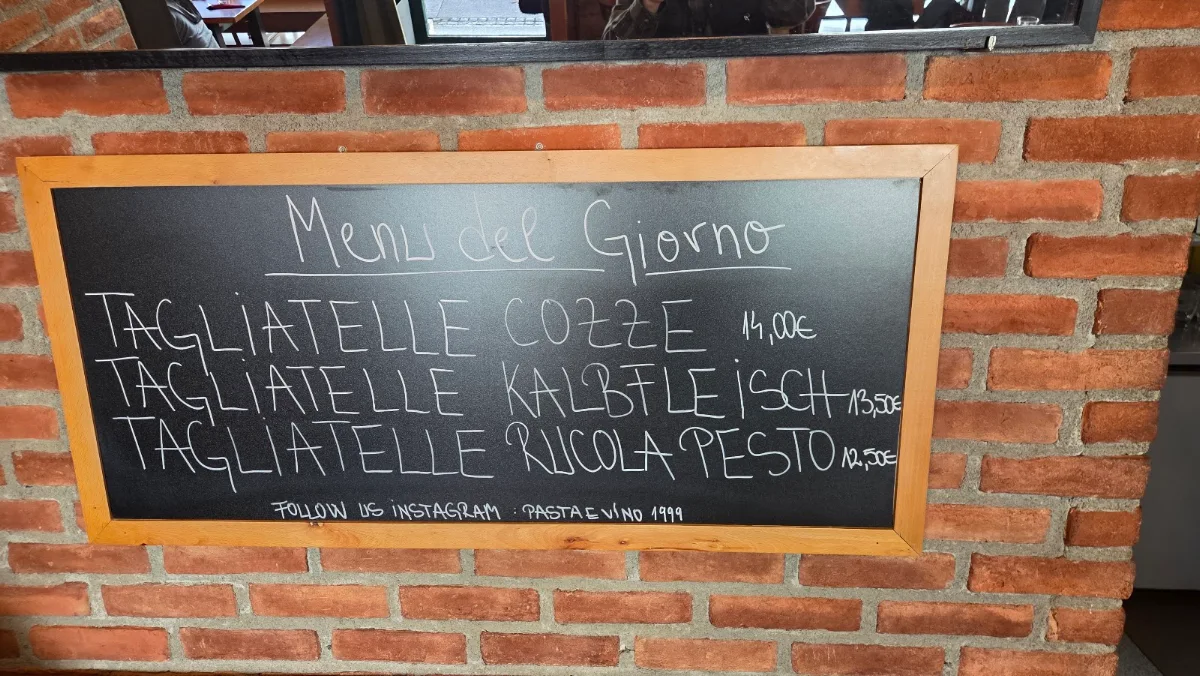 Menu del Giorno
TAGLIATELLE COZZE 14,00€
TAGLIATELLE KALBFLEISCH 13,50€
TAGLIATELLE RUCOLA PESTO 12,50€
FOLLOW US INSTAGRAM : PASTAEVINO 1999